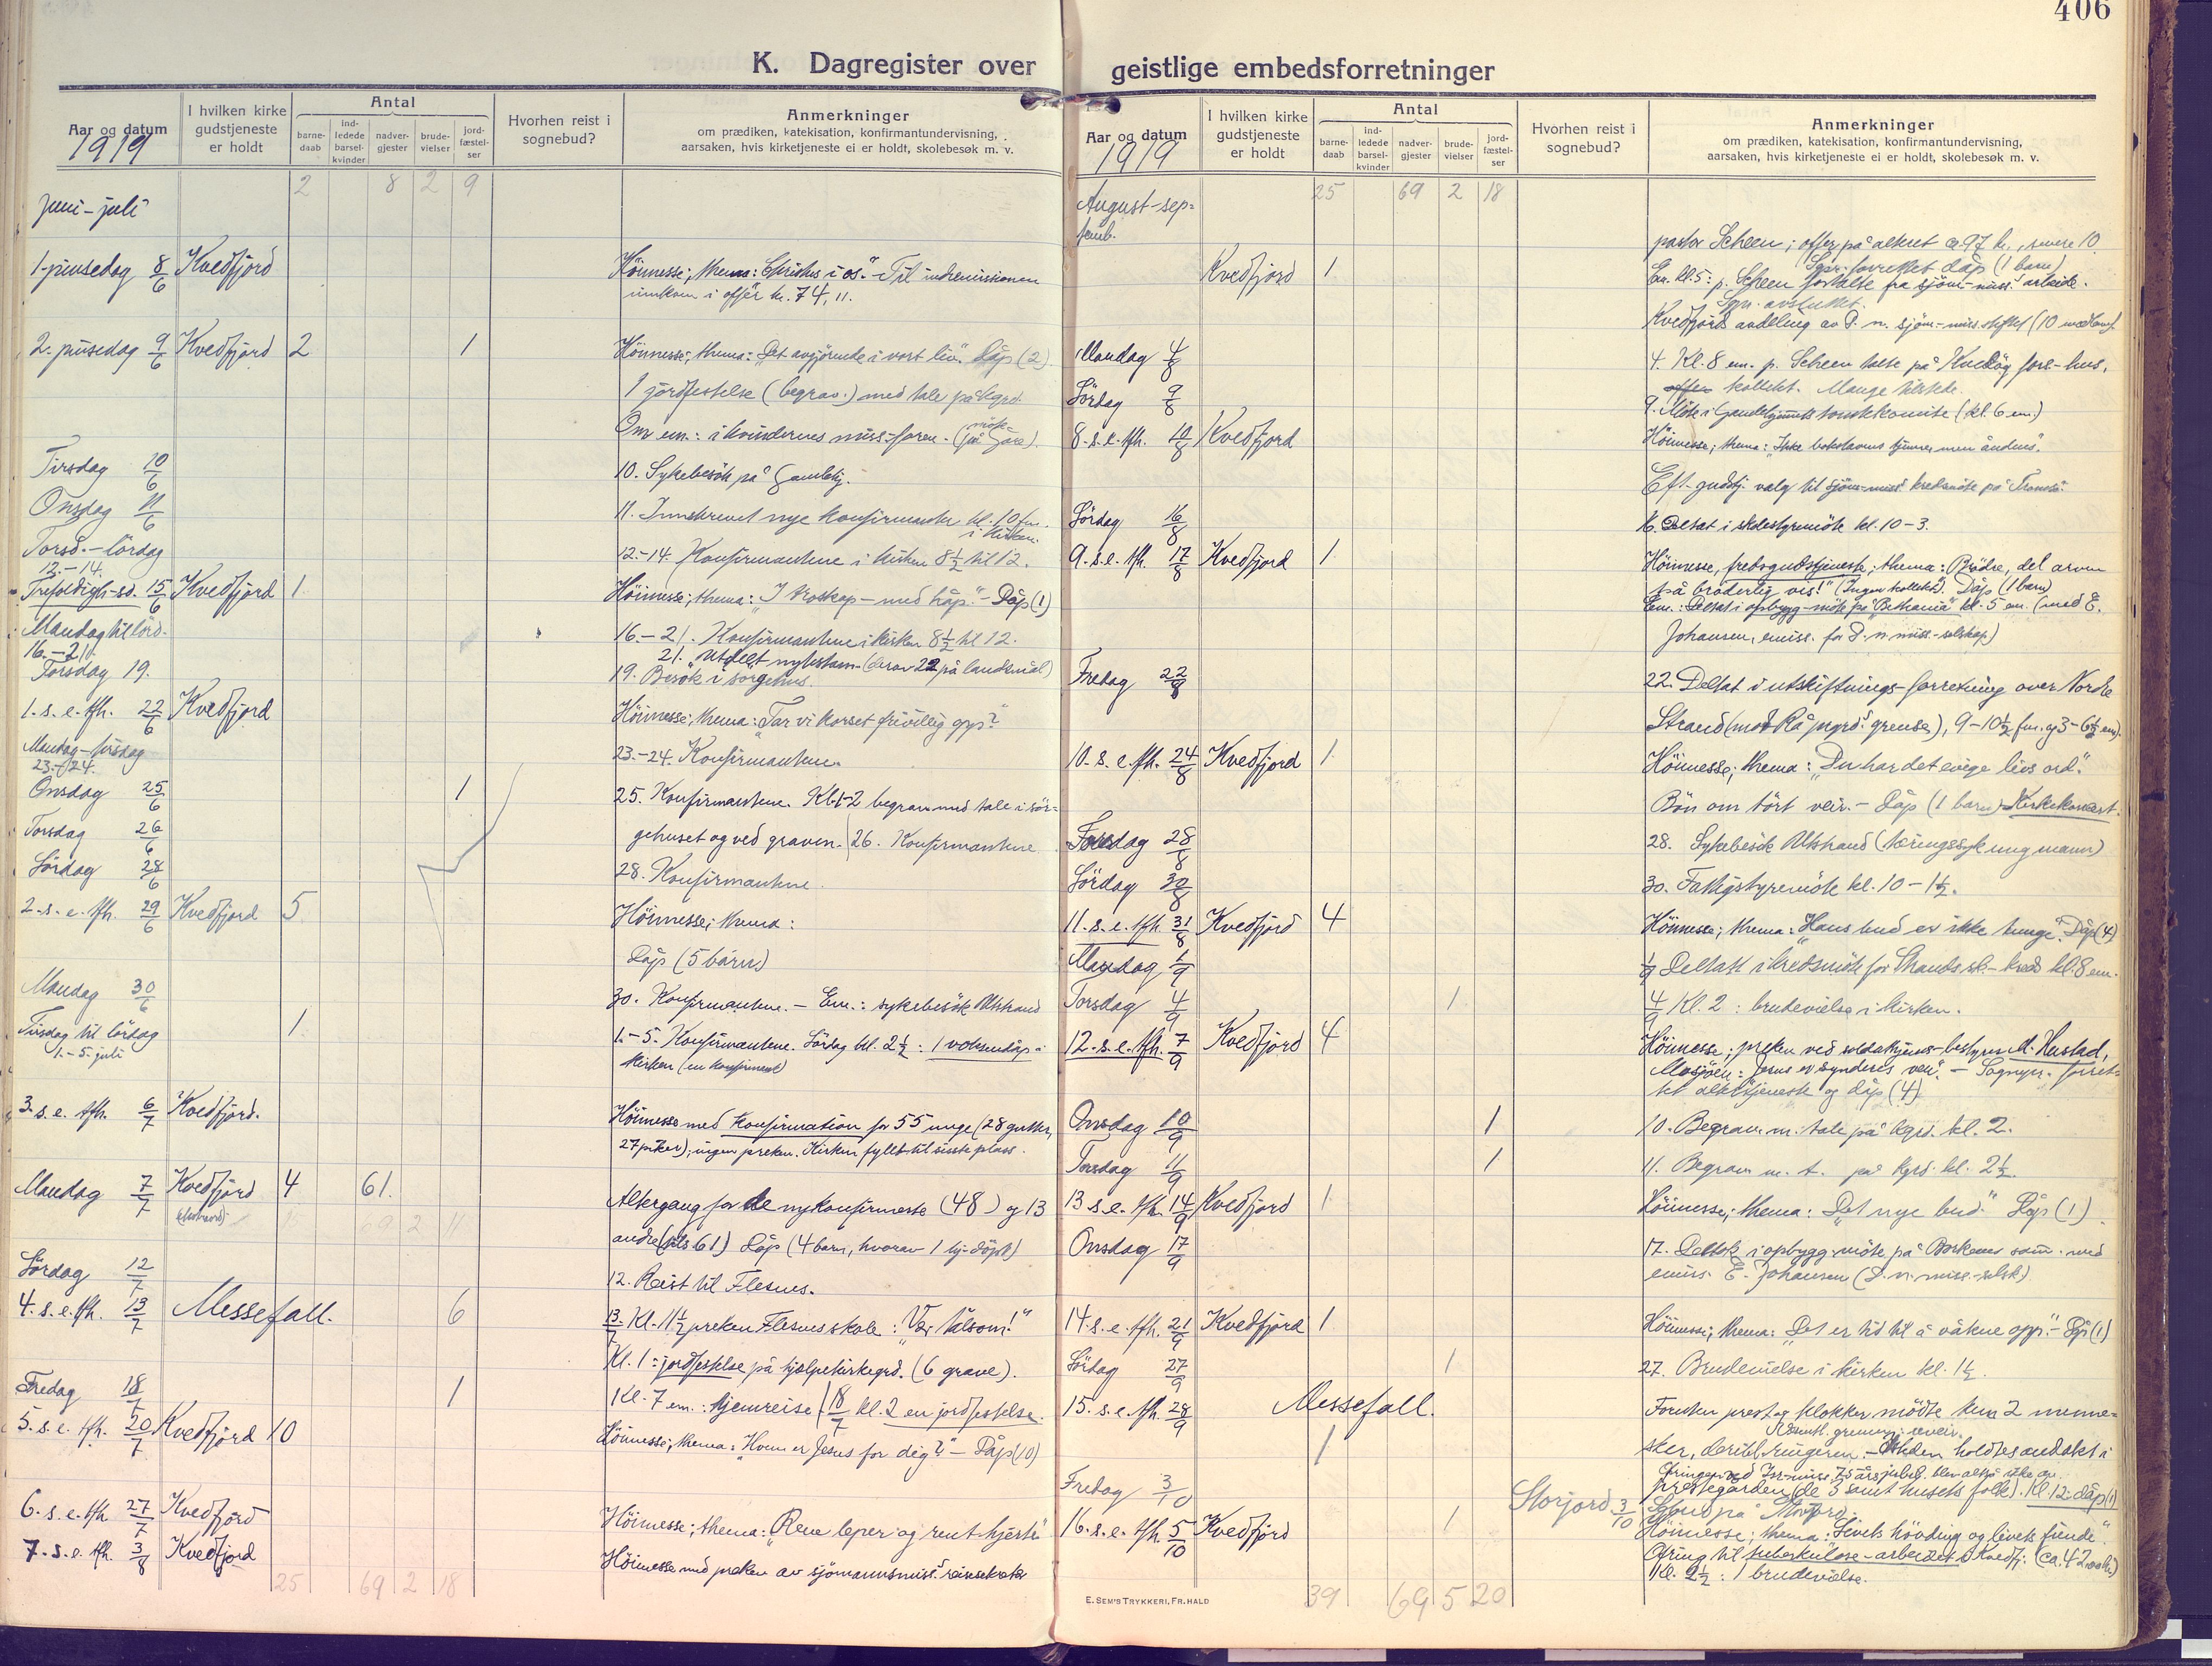 406
K. Dagregister over geistlige embedsforretninger
Aar og datum
1919
I hvilken kirke gudstjeneste er holdt
Antal
barne-daab
ind-ledede barsel-kvinder
nadver-gjester
brude-vielser
jord-fæstel-ser
Hvorhen reist i sognebud?
Anmerkninger
om prædiken, katekisation, konfirmantundervisning,
aarsaken, hvis kirketjeneste ei er holdt, skolebesøk m. v.
2 8 2 9
Juni-juli
1. pinsedag 8/6 Kvedfjord Höimesse; thema: "Christus i os." Til indremissionen
innkom i offer kr. 74,11.
2. pinsedag 9/6 Kvedfjord 2 1 Höimesse; thema: "Det avgjörende i vort liv." Dåp (2)
1 jordfestelse (begrav.) med tale på kgrd.
Om em.: i kvindernes miss.-foren.
Tirsdag 10/6 10. Sykebesök på Gamlehj.
Onsdag 11/6 11. Innskrevet nye konfirmanter kl. 10 fm.
i kirken.
Torsd.-lördag
12.-14. 12.-14. Konfirmantene i kirken 8½ til 12.
Trefoldigh-sö. 15/6 Kvedfjord 1 Höimesse; thema: "I troskap - med håp." - Dåp (1)
Mandag til lörd.
16.-21. 16.-21. Konfirmantene i kirken 8½ til 12.
21. Utdelt nytestam. (derav 22 på landsmål)
Torsdag 19. 19. Besök i sorgehus.
1. s. e. tfh. 22/6 Kvedfjord Höimesse; thema: "Tar vi korset frivillig opp?"
Mandag-tirsdag
23.-24. 23.-24. Konfirmantene.
Onsdag 25/6 1 25. Konfirmantene. Kl. 1-2 begrav. med tale i sör-
gehuset og ved graven. 26. Konfirmantene
Torsdag 26/6
Lördag 28/6 28. Konfirmantene.
2. s. e. tfh. 29/6 Kvedfjord 5 Höimesse; thema:
Dåp (5 barn)
Mandag 30/6 30. Konfirmantene. - Em.: sykebesök Altstrand
Tirsdag til lördag
1.-5. juli 1 1.-5. Konfirmantene. Lördag kl. 2½: 1 voksendåp i
kirken (en konfirmant)
3. s. e. tfh. 6/7 Kvedfjord. Höimesse med Konfirmation for 55 unge (28 gutter,
27 piker); ingen preken. Kirken fyllt til sisste plass.
Mandag 7/7 Kvedfjord 4 61. Altergang for de nykonfirmerte (48) og 13
andre (tils 61) Dåp (4 barn, hvorav 1 hj-döpt)
69 2 11
Lördag 12/7 12. Reist til Flesnes.
4. s. e. tfh. 13/7 Messefall. 6 13/7 Kl. 11½ preken Flesnes skole: "Vær tålsom!"
Kl. 1: jordfestelse på hjelpekirkegrd. (6 grave).
Kl. 7 em.: hjemreise
Fredag 18/7 1 18/7 kl. 2 en jordfestelse.
5. s. e. tfh. 20/7 Kvedfjord 10 Höimesse; thema: "Hvem er Jesus for dig?" - Dåp (10)
6. s. e. tfh. 27/7 Kvedfjord Höimesse; thema: "Rene leper og rent hjerte"
7. s. e. tfh. 3/8 Kvedfjord Höimesse med preken av sjömannsmiss. reisesekretær
25 69 2 18
Aar og datum
1919
I hvilken kirke gudstjeneste er holdt
Antal
barne-daab
ind-ledede barsel-kvinder
nadver-gjester
brude-vielser
jord-fæstel-ser
Hvorhen reist i sognebud?
Anmerkninger
om prædiken, katekisation, konfirmantundervisning,
aarsaken, hvis kirketjeneste ei er holdt, skolebesøk m. v.
25 69 2 18
August-sep-
temb.
pastor Scheen; offer på alteret ca 97 kr., senere 10
Kvedfjord 1 Sgpr. forrettet dåp (1 barn)
Em. kl. 5: p. Scheen fortalte fra sjöm-miss. arbeide.
Sgpr. avsluttet.
Kvedfjords avdeling av D. n. sjöm-miss. stiftet (10 medlem)
Mandag 4/8 4. Kl. 8 em. p. Scheen talte på fors-hus,
kollekt. Mange tilstede.
Lördag 9/8 9. Möte i (kl. 6 em.)
8. s. e. tfh. 10/8 Kvedfjord Höimesse; thema: "Ikke bokstavens tjener, men åndens".
Eft. gudstj. valg til sjöm-miss. kredsmöte på Tromsö.
Lördag 16/8 16. Deltat i skolestyremöte kl. 10-3.
9. s. e. tfh. 17/8 Kvedfjord 1 Höimesse, fredsgudstjeneste; thema: "Brödre, del arven
på broderlig vis!" (Ingen kollekt). Dåp (1 barn)
Em.: Deltat i opbygg-möte på "Bethania" kl. 5 em. (med E.
Johansen, emiss. for D. n. miss.-selskap)
Fredag 22/8 22. Deltat i utskiftnings-forretning over Nordre
Strand (mot Rå prgrd. grense), 9-10½ fm. og 3-6½ em).
10. s. e. tfh. 24/8 Kvedfjord 1 Höimesse; thema: "Du har det evige livs ord."
Bön om tört veir. - Dåp (1 barn) Kirkekonsert.
Torsdag 28/8 28. Sykebesök Altstrand (tæringssyk ung mann)
Lördag 30/8 30. Fattigstyremöte kl. 10 - 1½.
11. s. e. tfh. 31/8 Kvedfjord 4 Höimesse; thema: "Hans bud er ikke tunge". Dåp (4)
Mandag 1/9 1/9 Deltatt i kredsmöte for Strands sk.-kreds kl. 8 em.
Torsdag 4/9 1 4/9 Kl. 2: brudevielse i kirken.
12. s. e. tfh. 7/9 Kvedfjord 4 Höimesse; preken ved soldathjems-bestyrer M. Hustad,
Mosjöen: "Jesus er synderes ven". - Sognepr. forret-
tet altertjeneste og dåp (4)
Onsdag 10/9 1 10. Begrav. m. tale på kgrd. kl. 2.
Torsdag 11/9 1 11. Begrav. m. t. på kgrd. kl. 2½
13. s. e. tfh. 14/9 Kvedfjord 1 Höimesse; thema: "Det nye bud" Dåp (1)
Onsdag 17/9 17. Deltok i opbygg. möte på Borkenes sam. med
emiss. E. Johansen (D. n. miss-selsk)
14. s. e. tfh. 21/9 Kvedfjord 1 Höimesse; thema: "Det er tid til å våkne opp". - Dåp (1)
Lördag 27/9 1 27. Brudevielse i kirken kl. 1½.
15. s. e. tfh. 28/9 Messefall. Foruten prest og klokker mödte kun 2 menne-
sker, deribl. ringeren. - holdtes andakt i
1 Ofringen ved Isr-miss. 75 årsjubil. blev altså ikke av.
prestegården (de 3 samt husets folk). Kl. 12 dåp (1)
Fredag 3/10 Storjord 3/10 Sgbud på Storjord
16. s. e. tfh. 5/10 Kvedfjord 1 Höimesse; thema: "Livets hövding og livets fiende".
Ofring til tuberkulose-arbeidet i Kvedfj. (ca. 42)
Kl. 2½: 1 brudevielse.
39 69 5 20
E. SEM'S TRYKKERI, FR. HALD